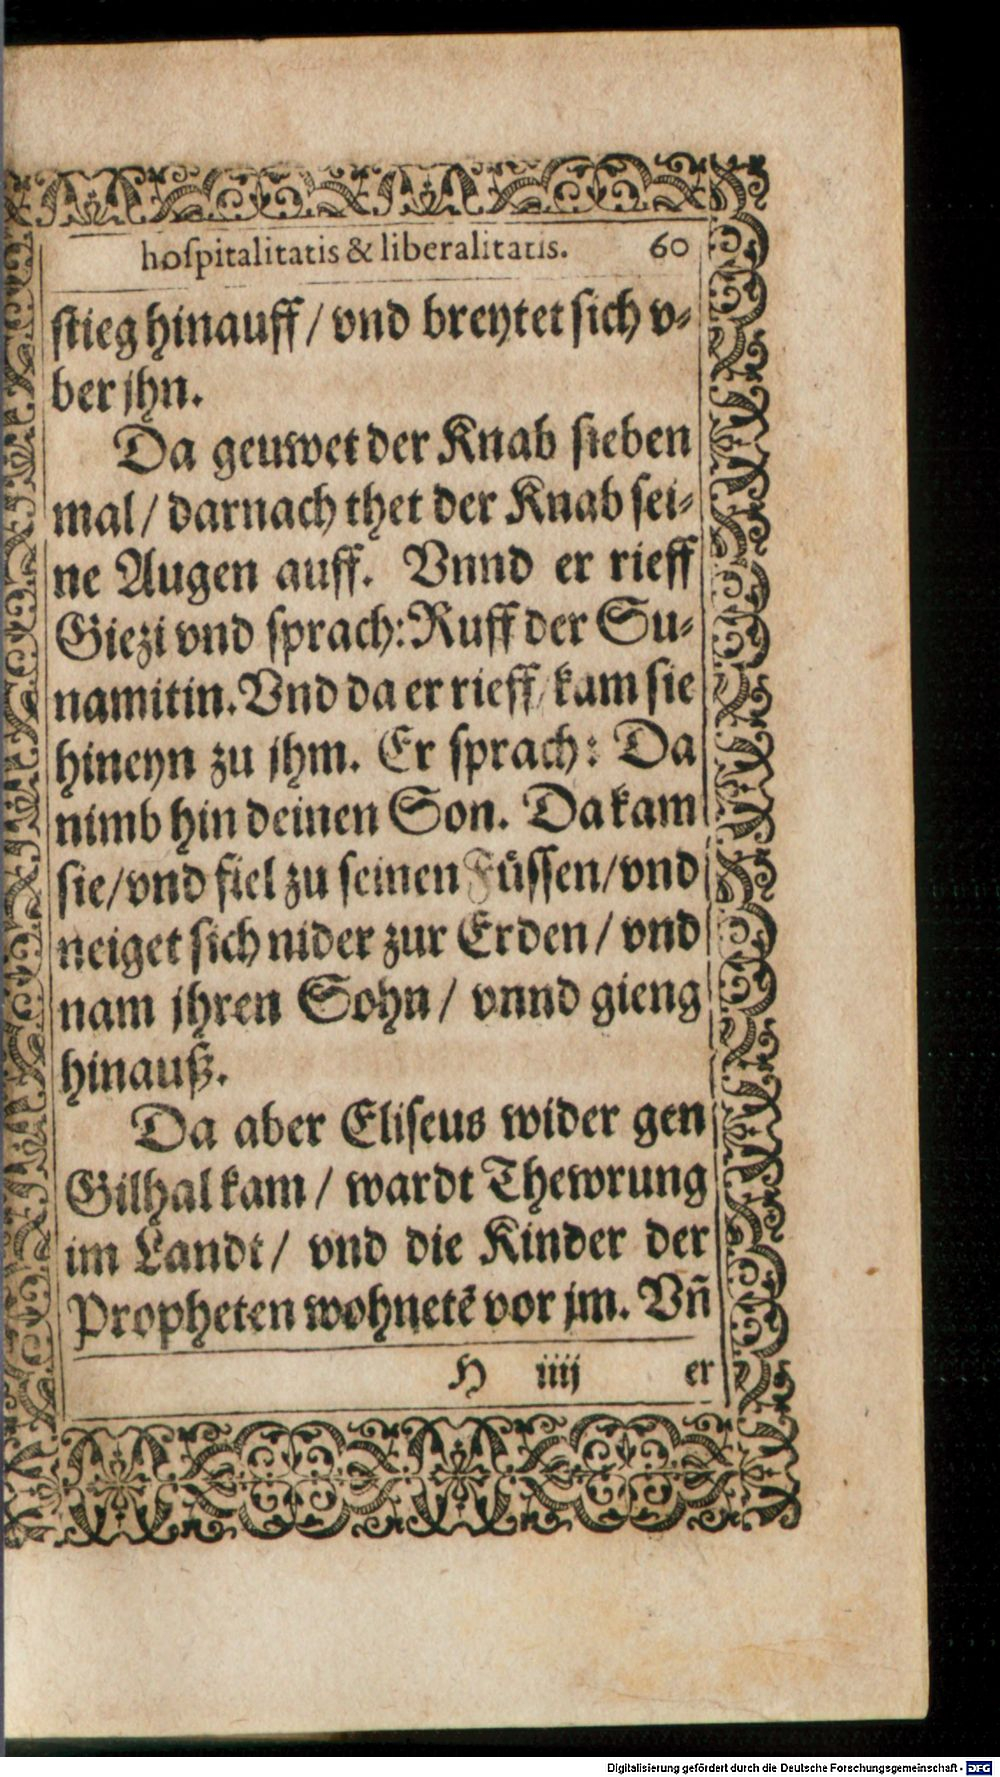 hoſpitalitatis & liberalitatis. 60
ſtieg hinauff / vnd breytet ſich v⸗
ber jhn.
Da geuwet der Knab ſieben
mal / darnach thet der Knab ſei⸗
ne Augen auff. Vnnd er rieff
Giezi vnd ſprach: Ruff der Su⸗
namitin. Vnd da er rieff / kam ſie
hineyn zu jhm. Er ſprach: Da
nimb hin deinen Son. Da kam
ſie / vnd fiel zu ſeinen Füſſen / vnd
neiget ſich nider zur Erden / vnd
nam jhren Sohn / vnnd gieng
hinauß.
Da aber Eliſeus wider gen
Gilhal kam / wardt Thewrung
im Landt / vnd die Kinder der
Propheten wohnetē vor jm. Vñ
H iiij er
Digitalisierung gefördert durch die Deutsche Forschungsgemeinschaft - DFG